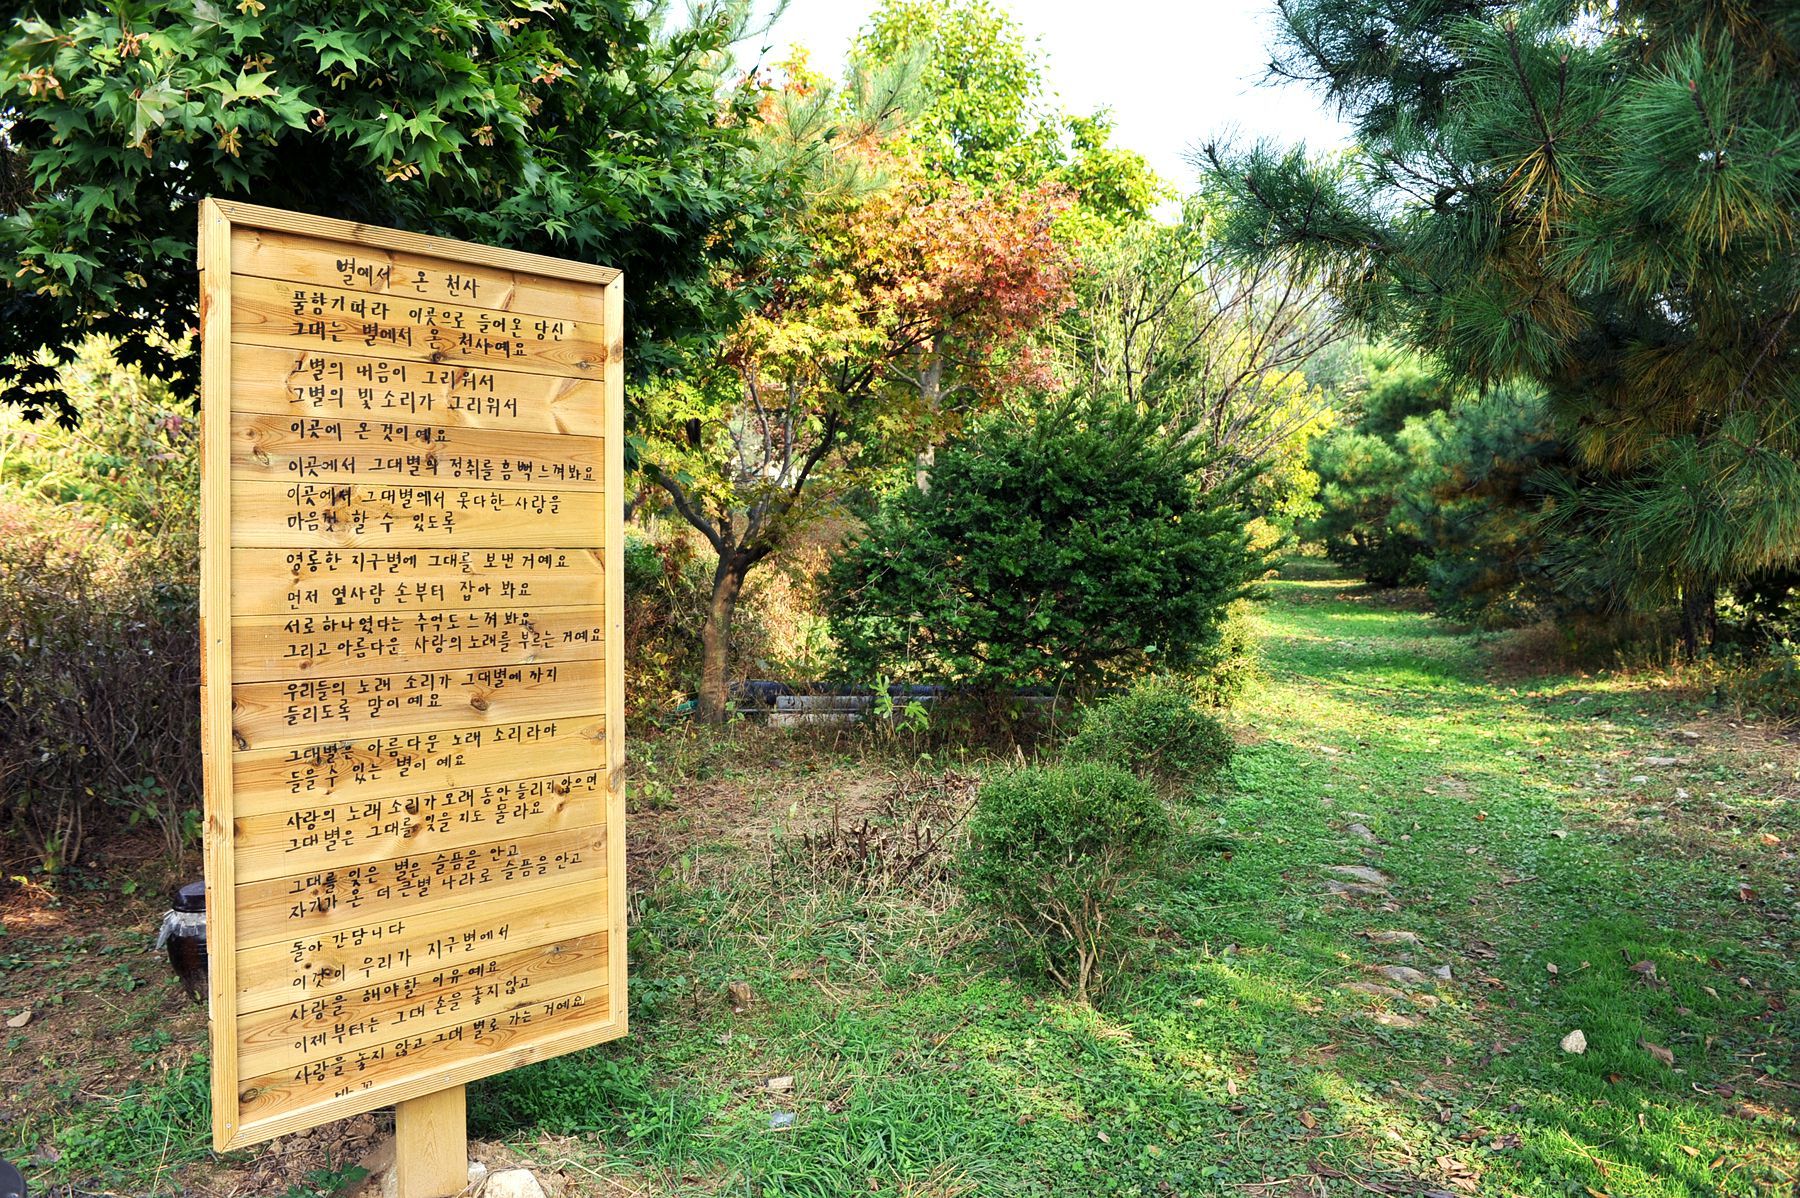 별에서 온 천사
풀향기따라 이곳으로 들어온 당신
그대는 별에서 온 천사예요
그별의 내음이 그리워서
그별의 빛 소리가 그리워서
이곳에 온 것이예요
이곳에서 그대별의 정취를 흠뻑 느껴봐요
이곳에서 그대별에서 못다한 사랑을
마음껏 할 수 있도록
영롱한 지구별에 그대를 보낸거예요
먼저 옆사람 손부터 잡아 봐요
서로하나였다는 추억도느껴 봐요
그리고 아름다운 사랑의노래를 부르는 거예요
우리들의 노래 소리가 그대별에 까지
들리도록 말이예요
그대별은 아름다운 노래 소리라야
들을수 있는 별이예요
사랑의 노래 소리가 오래 동안 들리지 않으면
그대별은 그대를 잊을지도 몰라요
그대를 잊은 별은 슬픔을 안고
자기가 온 더 큰별 나라로 슬픔을 안고
돌아 간답니다
이것이 우리가 지구별에서
사랑을 해야할 이유예요
이제부터는 그대 손을 놓지 않고
사랑을 놓지 않고 그대 별로 가는 거예요